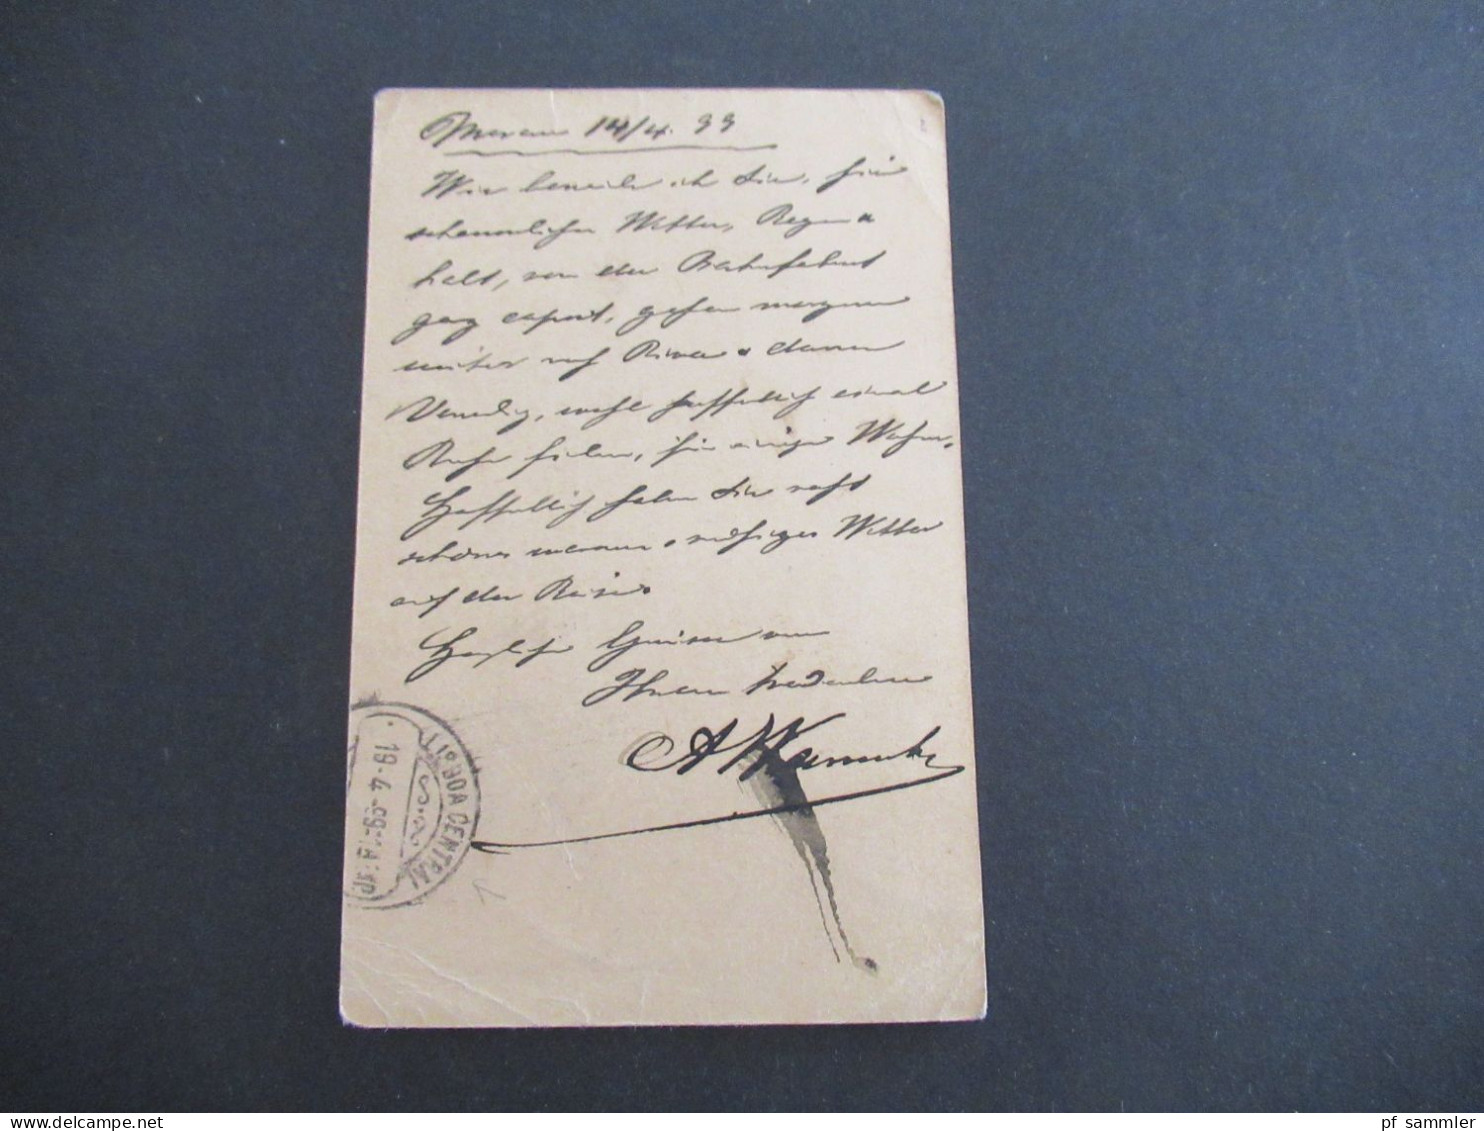 Meran 14/4. 99
Wir beneiden Sie, hier
scheussliches Wetter, Regen u
kalt, von der Bahnfahrt
ganz caput, gehen morgen
weiter nach Riva u dann
Venedig, wo hoffentlich einmal
Ruhe finden, für einige Wochen.
Hoffentlich haben Sie recht
schönes warmes u ruhiges Wetter
auf der Reise.
Herzliche Grüsse von
Ihrem
A
LISBOA CENTRAL
19-4-99
pf sammler
www.delcampe.net